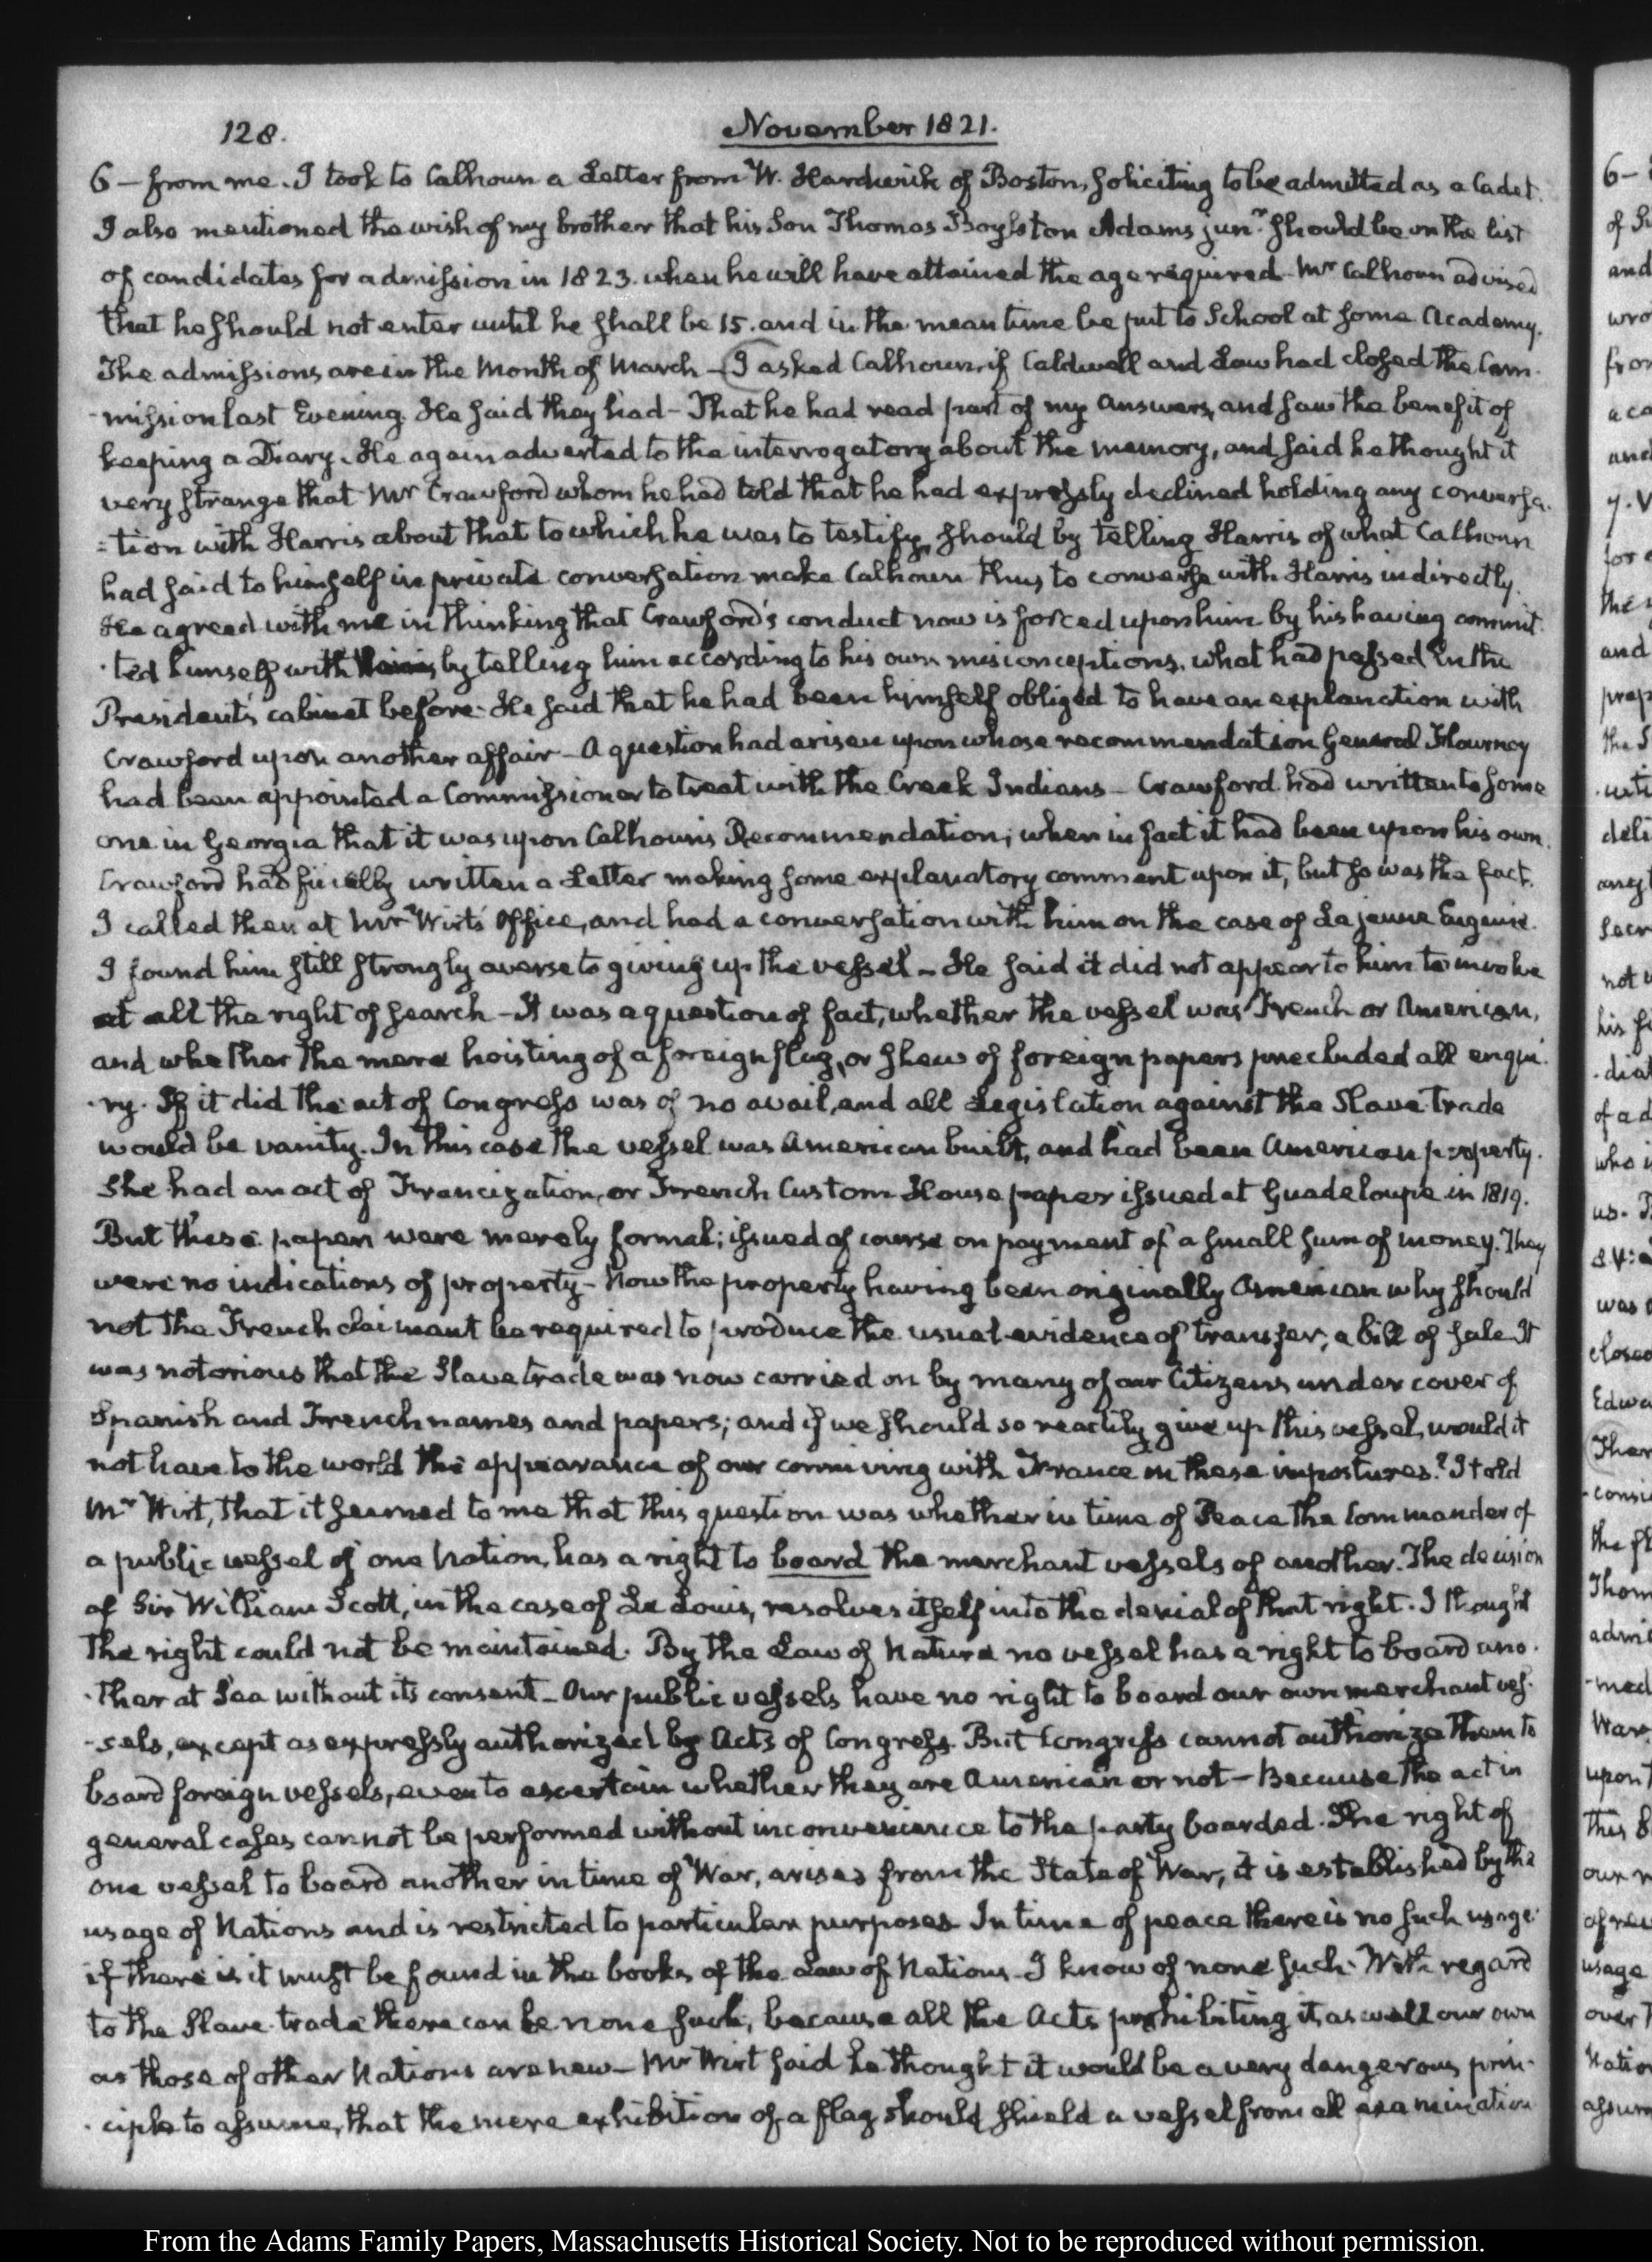 128.
November 1821.
6 — from me. I took to Calhoun a Letter from W. Hardwick of Boston, soliciting to be admitted as a Cadet.
I also mentioned the wish of my brother that his Son Thomas Boylston Adams junr. should be on the list
of candidates for admission in 1823. when he will have attained the age required. Mr Calhoun advised
that he should not enter until he shall be 15. and in the mean time be put to School at some Academy.
The admissions are in the Month of March — I asked Calhoun, if Caldwell and Law had closed the Com-
-mission last Evening. He said they had — That he had read part of my Answers, and saw the benefit of
keeping a Diary. He again adverted to the interrogatory about the memory, and said he thought it
very strange that Mr Crawford whom he had told that he had expressly declined holding any conversa-
=tion with Harris about that to which he was to testify, should by telling Harris of what Calhoun
had said to himself in private conversation make Calhoun thus to converse with Harris indirectly.
He agreed with me in thinking that Crawford's conduct now is forced upon him by his having commit-
-ted himself with by telling him according to his own misconceptions, what had passed in the
President's cabinet before. He said that he had been himself obliged to have an explanation with
Crawford upon another affair — A question had arisen upon whose recommendation General Flournoy
had been appointed a Commissioner to treat with the Creek Indians — Crawford had written to some
one in Georgia that it was upon Calhoun's Recommendation; when in fact it had been upon his own.
Crawford had finally written a Letter making some explanatory comment upon it, but so was the fact.
I called then at Mr Wirt's Office, and had a conversation with him on the case of La jeune Eugenie.
I found him still strongly averse to giving up the vessel — He said it did not appear to him to involve
at all the right of search — It was a question of fact, whether the vessel was French or American,
and whether the mere hoisting of a foreign flag, or shew of foreign papers precluded all enqui-
-ry. If it did the act of Congress was of no avail, and all Legislation against the Slave trade
would be vanity. In this case the vessel was American built, and had been American property.
She had an act of Francization, or French Custom House paper issued at Guadeloupe in 1819.
But these papers were merely formal; issued of course on payment of a small sum of money. They
were no indications of property — Now the property having been originally American why should
not the French claimant be required to produce the usual evidence of transfer; a bill of sale. It
was notorious that the Slave trade was now carried on by many of our Citizens under cover of
Spanish and French names and papers; and if we should so readily give up this vessel, would it
not have to the world the appearance of our conniving with France in these impostures? I told
Mr Wirt, that it seemed to me that this question was whether in time of Peace the Commander of
a public vessel of one Nation, has a right to board the merchant vessels of another. The decision
of Sir William Scott, in the case of Le Louis, resolves itself into the denial of that right. I thought
the right could not be maintained. By the Law of Nature no vessel has a right to board ano-
-ther at Sea without its consent — Our public vessels have no right to board our own merchant ves-
-sels, except as expressly authorized by Acts of Congress. But Congress cannot authorize them to
board foreign vessels, even to ascertain whether they are American or not — Because the act in
general cases cannot be performed without inconvenience to the party boarded. The right of
one vessel to board another in time of War, arises from the State of War, it is established by the
usage of Nations and is restricted to particular purposes. In time of peace there is no such usage.
if there is it must be found in the books of the Law of Nations. I know of none such. With regard
to the Slave trade there can be none such, because all the Acts prohibiting it, as well our own
as those of other Nations are new — Mr Wirt said he thought it would be a very dangerous prin-
-ciple to assume, that the mere exhibition of a flag should shield a vessel from all examination
From the Adams Family Papers, Massachusetts Historical Society. Not to be reproduced without permission.